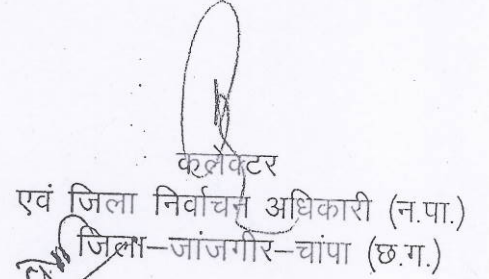 कलेक्टर
एवं जिला निर्वाचन अधिकारी (न.पा.)
जिला-जांजगीर-चांपा (छ.ग.)